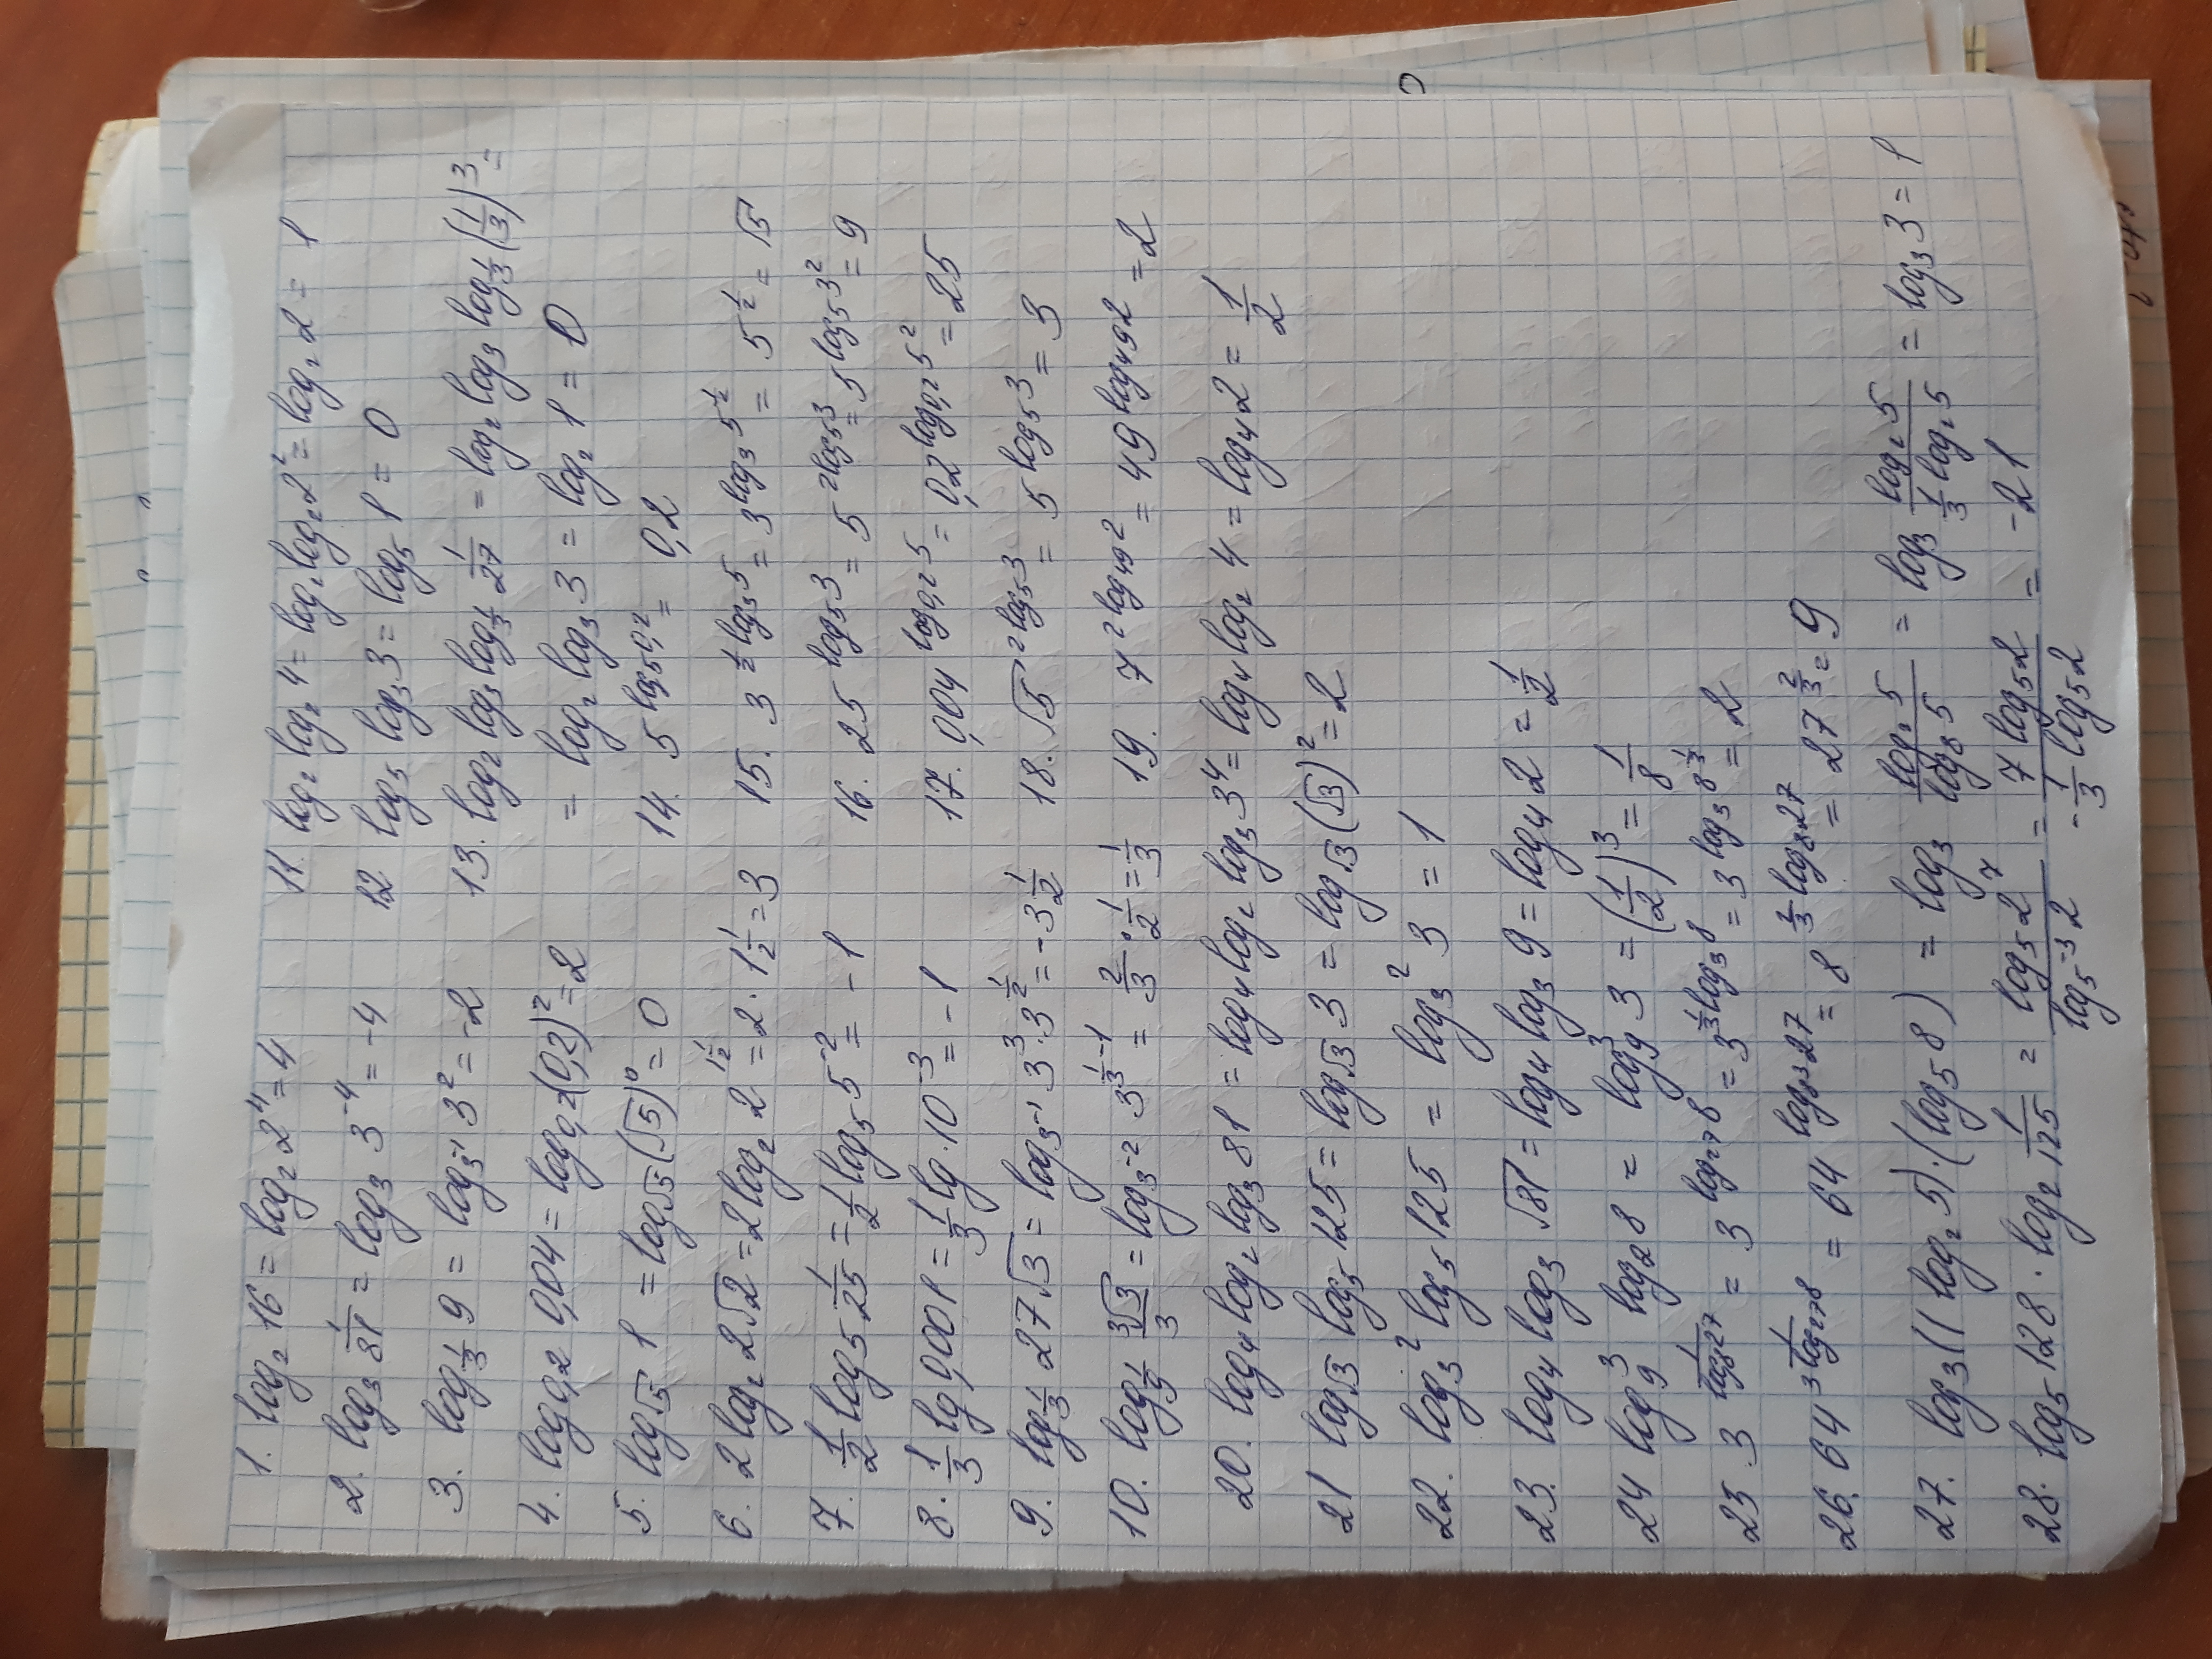 1. log₂ 16 = log₂ 2⁴ = 4
2. log₃ 1/81 = log₃ 3⁻⁴ = -4
3. log_{1/3} 9 = log_{3⁻¹} 3² = -2
4. log_{0,2} 0,04 = log_{0,2} (0,2)² = 2
5. log_{√5} 1 = log_{√5} (√5)⁰ = 0
6. 2 log₂ 2√2 = 2 log₂ 2^{1 1/2} = 2 · 1 1/2 = 3
7. 1/2 log₅ 1/25 = 1/2 log₅ 5⁻² = -1
8. 1/3 lg 0,001 = 1/3 lg · 10⁻³ = -1
9. log_{1/3} 27√3 = log_{3⁻¹} 3³ · 3^{1/2} = -3 1/2
10. log_{1/9} ³√3/3 = log_{3⁻²} 3^{1/3-1} = 2/3 · 1/2 = 1/3
11. log₂ log₂ 4 = log₂ log₂ 2² = log₂ 2 = 1
12 log₅ log₃ 3 = log₅ 1 = 0
13. log₂ log₃ log_{1/3} 1/27 = log₂ log₃ log_{1/3} (1/3)³ =
= log₂ log₃ 3 = log₂ 1 = 0
14. 5^{log₅ 0,2} = 0,2
15. 3^{1/2 log₃ 5} = 3^{log₃ 5^{1/2}} = 5^{1/2} = √5
16. 25^{log₅ 3} = 5^{2 log₅ 3} = 5^{log₅ 3²} = 9
17. 0,04^{log_{0,2} 5} = 0,2^{log_{0,2} 5²} = 25
18. √5^{2 log₅ 3} = 5^{log₅ 3} = 3
19. 7^{2 log₄₉ 2} = 49^{log₄₉ 2} = 2
20. log₄ log₂ log₃ 81 = log₄ log₂ log₃ 3⁴ = log₄ log₂ 4 = log₄ 2 = 1/2
21 log_{√3} log₅ 125 = log_{√3} 3 = log_{√3} (√3)² = 2
22. log₃² log₅ 125 = log₃² 3 = 1
23. log₄ log₃ √81 = log₄ log₃ 9 = log₄ 2 = 1/2
24 log₉³ log₂ 8 = log₉³ 3 = (1/2)³ = 1/8
25. 3^{1/log₈ 27} = 3^{log₂₇ 8} = 3^{1/3 log₃ 8} = 3^{log₃ 8^{1/3}} = 2
26. 64^{1/(3 log₂₇ 8)} = 64^{1/3 log₈ 27} = 8^{2/3 log₈ 27} = 27^{2/3} = 9
27. log₃ ((log₂ 5) · (log₅ 8)) = log₃ log₂ 5/log₈ 5 = log₃ log₂ 5/(1/3 log₂ 5) = log₃ 3 = 1
28. log₅ 128 · log₂ 1/125 = log₅ 2⁷/log_{5⁻³} 2 = 7 log₅ 2/(-1/3 log₅ 2) = -21